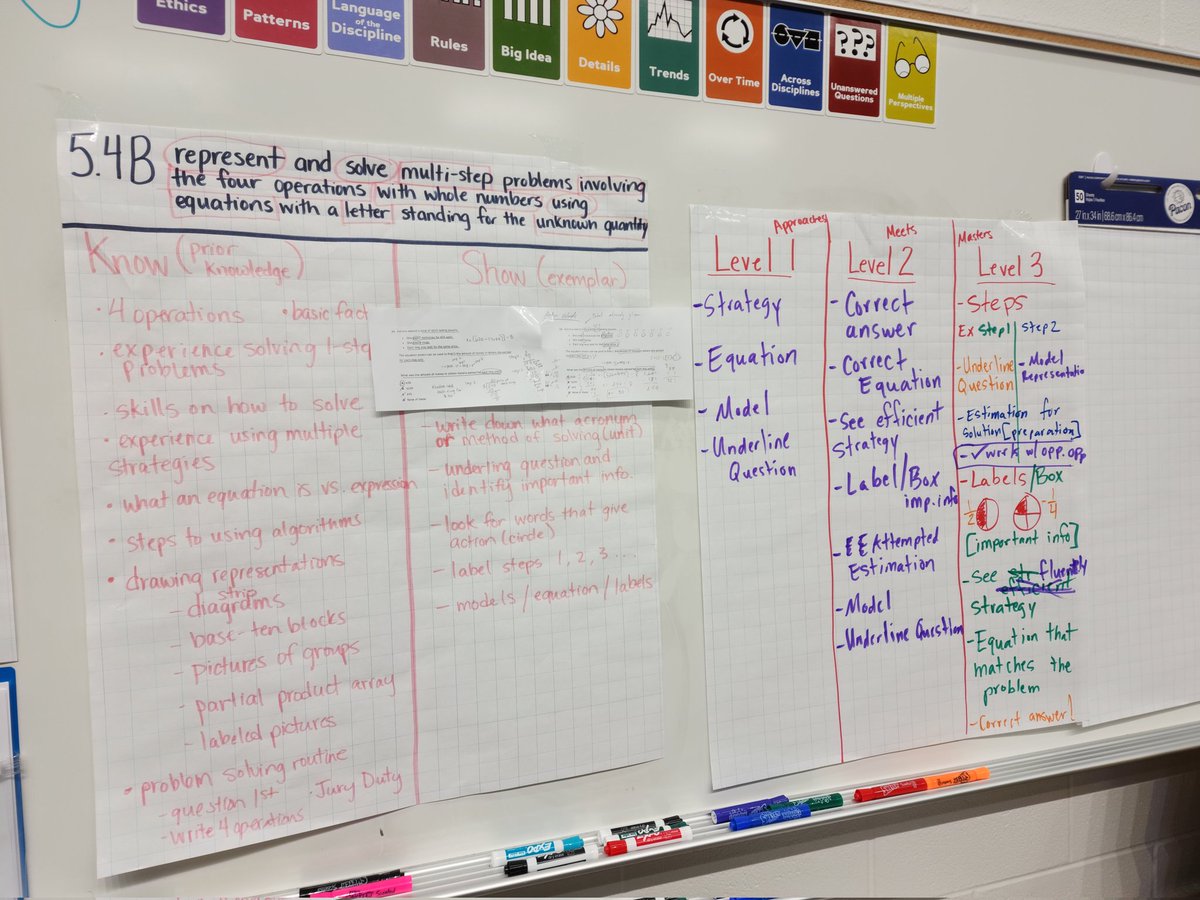 Ethics
Patterns
Language
of the
Discipline
Rules
Big Idea
Details
Trends
Over Time
Across
Disciplines
???
Unanswered
Questions
Multiple
Perspectives
5.4B represent and solve multi-step problems involving
the four operations with whole numbers using
equations with a letter standing for the unknown quantity
Know (prior
knowledge)
• 4 operations • basic fact
• experience solving 1-ste
problems
• skills on how to solve
• experience using multiple
strategies
• what an equation is vs. expression
• steps to using algorithms
• drawing representations
- strip
diagrams
- base-ten blocks
- pictures of groups
- partial product array
- labeled pictures
• problem solving routine
- question 1st • Jury Duty
- write 4 operations
Show (exemplar)
- write down what acronym
or method of solving (unit)
- underling question and
identify important info.
- look for words that give
action (circle)
- label steps 1, 2, 3....
- models / equation / labels
Approaches
Level 1
- Strategy
- Equation
- Model
- Underline
Question
Meets
Level 2
- Correct
answer
- Correct
Equation
- See efficient
strategy
- Label/Box
imp. info
- Attempted
Estimation
- Model
- Underline Question
Masters
Level 3
- Steps
Ex Step 1 Step 2
- Underline
Question
- Model
Representatio
- Estimation for
solution [preparation]
- ✓ work w/ opp. opp
- Labels/Box
1/2 - 1/4
[important info]
- see fluently
efficient
strategy
- Equation that
matches the
problem
- Correct answer!
50
27 in x 34 in | 68.6 cm x 86.4 cm
Pacon
EXPO